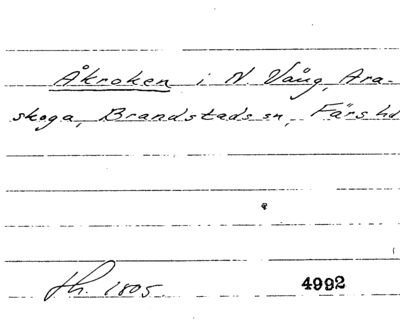 Åkroken i N. Vång, Ara-
skoga, Brandstads sn, Färs hd
th. 1805. 4992